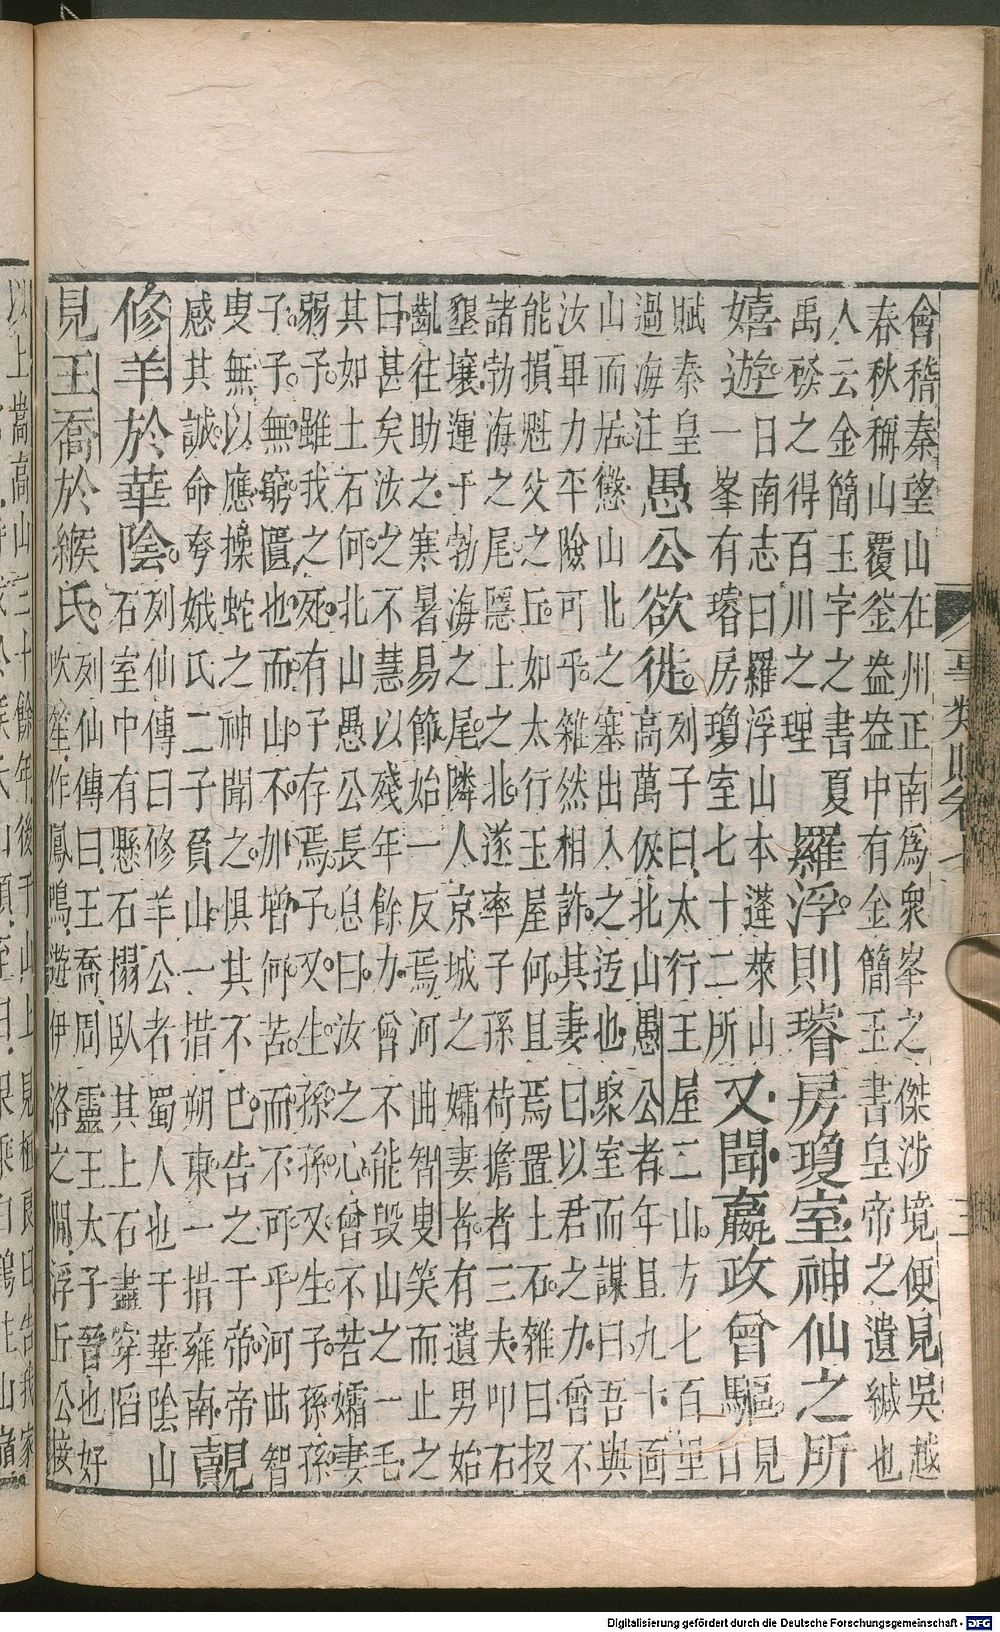 會稽秦望山在州正南爲衆峯之傑渉境便見吳越
春秋稱山覆釡盎盎中有金簡玉書皇帝之遺緘也
人云金簡玉字之書夏
禹發之得百川之理
羅浮則璿房瓊室神仙之所
嬉遊
日南志曰羅浮山本蓬萊山
一峯有璿房瓊室七十二所
又聞嬴政曾驅
見
日
賦秦皇
過海注
愚公欲徙
列子曰太行王屋二山方七百里
高萬仭北山愚公者年且九十面
山而居懲山北之塞出入之迃也聚室而謀曰吾與
汝畢力平險可乎雜然相許其妻曰以君之力曾不
能損魁父之丘如太行王屋何且焉置土石雜曰投
諸勃海之尾隱上之北遂率子孫荷擔者三夫叩石
墾壤運于勃海之尾隣人京城之孀妻者有遺男始
齓往助之寒暑易節始一反焉河曲智叟笑而止之
曰甚矣汝之不慧以殘年餘力曾不能毀山之一毛
其如土石何北山愚公長息曰汝之心曾不若孀妻
弱子雖我之死有子存焉子又生孫孫又生子孫孫
子子無窮匱也而山不加增何苦而不可乎河曲智
叟無以應操蛇之神聞之懼其不已告之于帝帝
感其誠命夸娥氏二子負山一措朔東一措雍南
覿
修羊於華陰
列仙傳曰修羊公者蜀人也于華陰山
石室中有懸石榻臥其上石盡穿陷
見王喬於緱氏
列仙傳曰王喬周靈王太子晉也好
吹笙作鳳鳴遊伊洛之間浮丘公接
以上嵩高山三十餘年後于山上見桓良曰告我家
事類賦卷七
三
Digitalisierung gefördert durch die Deutsche Forschungsgemeinschaft - DFG